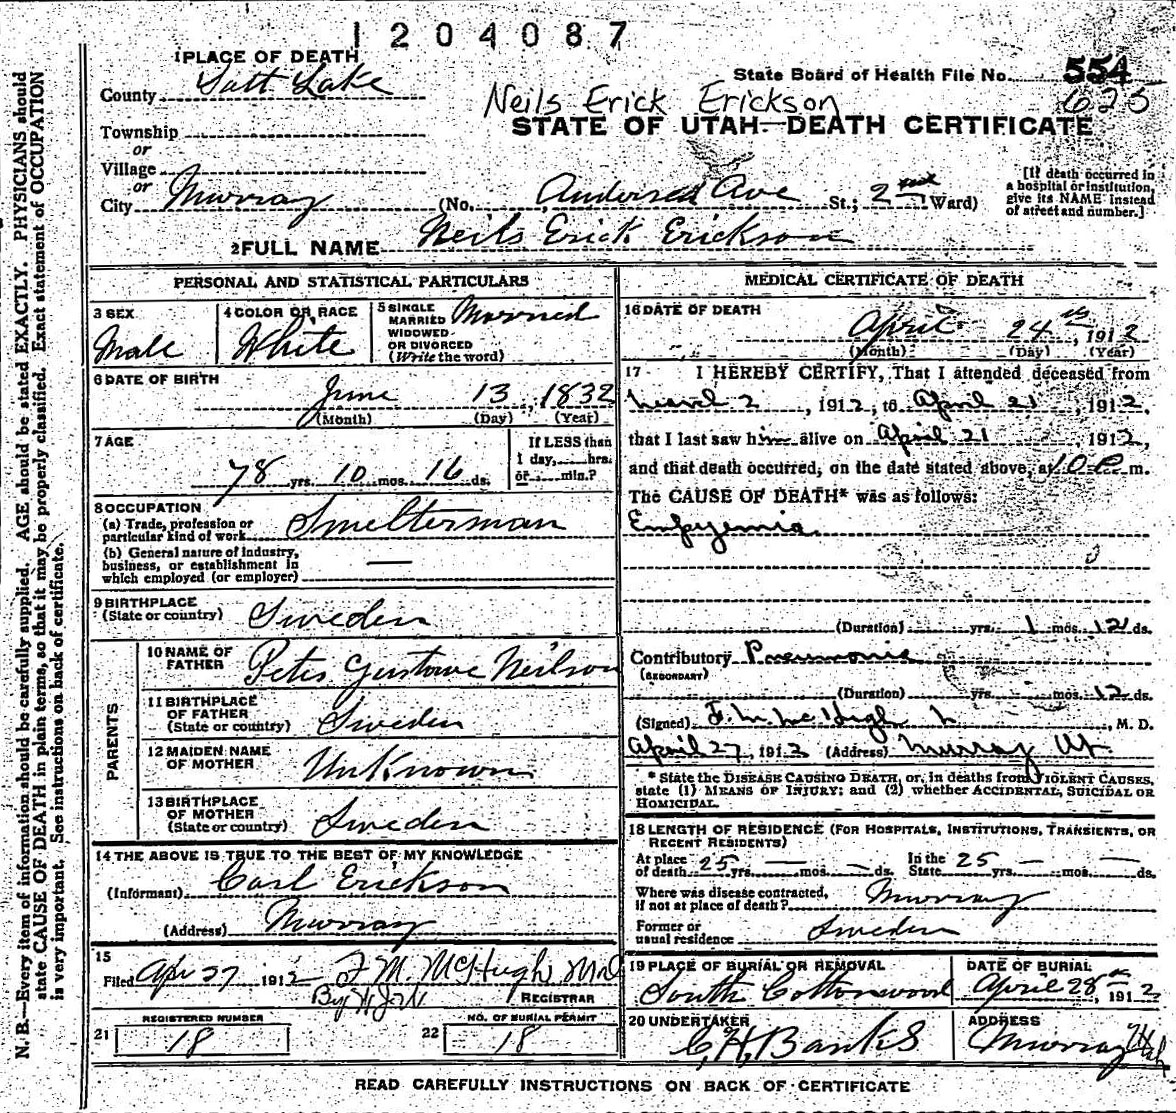 1204087
1 PLACE OF DEATH
County Salt Lake
State Board of Health File No. 554
625
Neils Erick Erickson
STATE OF UTAH—DEATH CERTIFICATE
Township
or
Village
or
City Murray (No. Anderson Ave St.; 2nd Ward)
[If death occurred in
a hospital or institution,
give its NAME instead
of street and number.]
2 FULL NAME Neils Erick Erickson
PERSONAL AND STATISTICAL PARTICULARS
3 SEX
Male
4 COLOR OR RACE
White
5 SINGLE
MARRIED
WIDOWED
OR DIVORCED
(Write the word)
Married
6 DATE OF BIRTH
June 13, 1832
(Month) (Day) (Year)
7 AGE
78 yrs. 10 mos. 16 ds.
If LESS than
1 day, hrs.
or min.?
8 OCCUPATION
(a) Trade, profession or
particular kind of work Smelterman
(b) General nature of industry,
business, or establishment in
which employed (or employer) —
9 BIRTHPLACE
(State or country) Sweden
PARENTS
10 NAME OF
FATHER Peter Gustave Neilson
11 BIRTHPLACE
OF FATHER
(State or country) Sweden
12 MAIDEN NAME
OF MOTHER Unknown
13 BIRTHPLACE
OF MOTHER
(State or country) Sweden
14 THE ABOVE IS TRUE TO THE BEST OF MY KNOWLEDGE
(Informant) Carl Erickson
(Address) Murray
15
Filed Apr 27 1912 F. M. McHugh MD
By
REGISTRAR
REGISTERED NUMBER
21 18
NO. OF BURIAL PERMIT
22 18
MEDICAL CERTIFICATE OF DEATH
16 DATE OF DEATH
April 24th, 1912
(Month) (Day) (Year)
17 I HEREBY CERTIFY, That I attended deceased from
March 2, 1912, to April 21, 1912,
that I last saw him alive on April 21, 1912,
and that death occurred, on the date stated above, at 10 P m.
The CAUSE OF DEATH* was as follows:
Empyemia
(Duration) yrs. 1 mos. 12 ds.
Contributory Pneumonia
(SECONDARY)
(Duration) yrs. mos. 12 ds.
(Signed) F. M. McHugh, M. D.
April 27, 1912 (Address) Murray Ut.
* State the DISEASE CAUSING DEATH, or, in deaths from VIOLENT CAUSES,
state (1) MEANS OF INJURY; and (2) whether ACCIDENTAL, SUICIDAL OR
HOMICIDAL.
18 LENGTH OF RESIDENCE (FOR HOSPITALS, INSTITUTIONS, TRANSIENTS, OR
RECENT RESIDENTS)
At place
of death 25 yrs. — mos. — ds.
In the
State 25 yrs. — mos. — ds.
Where was disease contracted,
if not at place of death? Murray
Former or
usual residence Sweden
19 PLACE OF BURIAL OR REMOVAL
South Cottonwood
DATE OF BURIAL
April 28th, 1912
20 UNDERTAKER
C. H. Banks
ADDRESS
Murray Utah
READ CAREFULLY INSTRUCTIONS ON BACK OF CERTIFICATE
N. B.—Every item of information should be carefully supplied. AGE should be stated EXACTLY. PHYSICIANS should
state CAUSE OF DEATH in plain terms, so that it may be properly classified. Exact statement of OCCUPATION
is very important. See instructions on back of certificate.